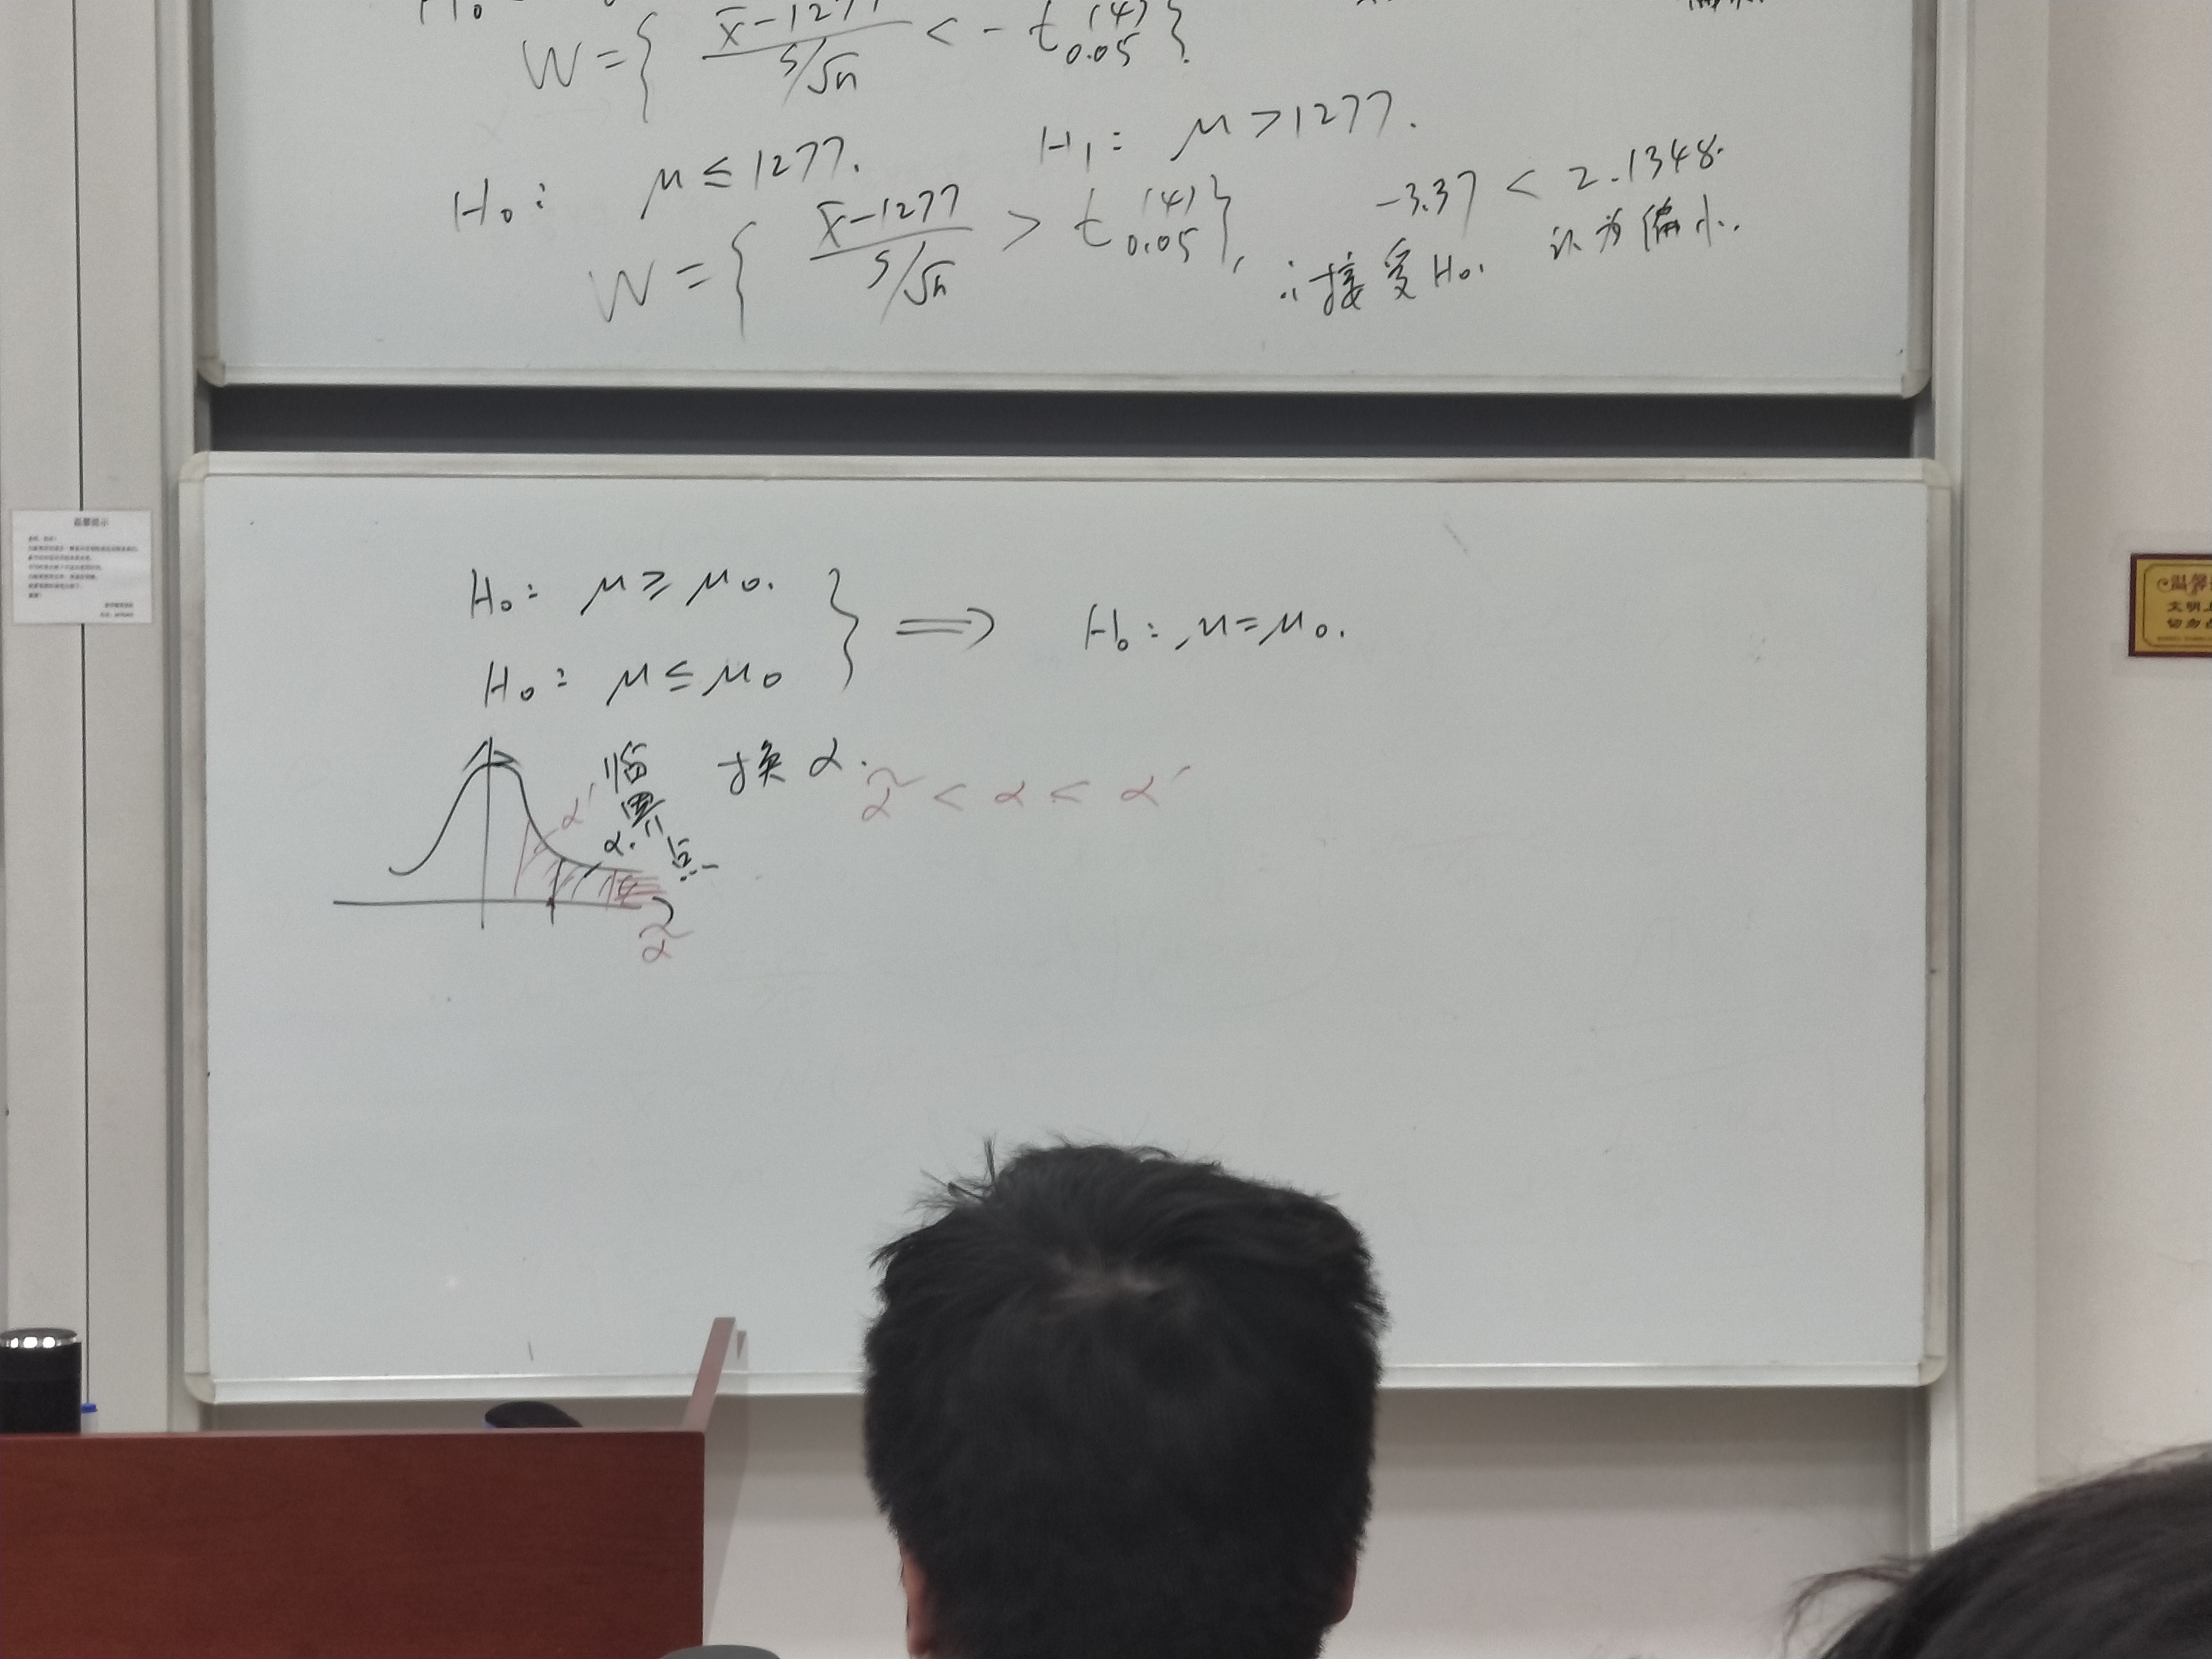 W = { (x̄-1277)/(S/√n) < - t₀.₀₅⁽⁴⁾ }.
H₀: μ ≤ 1277. H₁: μ > 1277.
W = { (x̄-1277)/(S/√n) > t₀.₀₅⁽⁴⁾ }, -3.37 < 2.1348.
∴接受H₀. 认为偏小.
H₀: μ ≥ μ₀.
H₀: μ ≤ μ₀ } ⟹ H₀: μ = μ₀.
临界点 换α. α̃ < α < α′
α′
α.
α̃
温馨提示
温馨
文明上